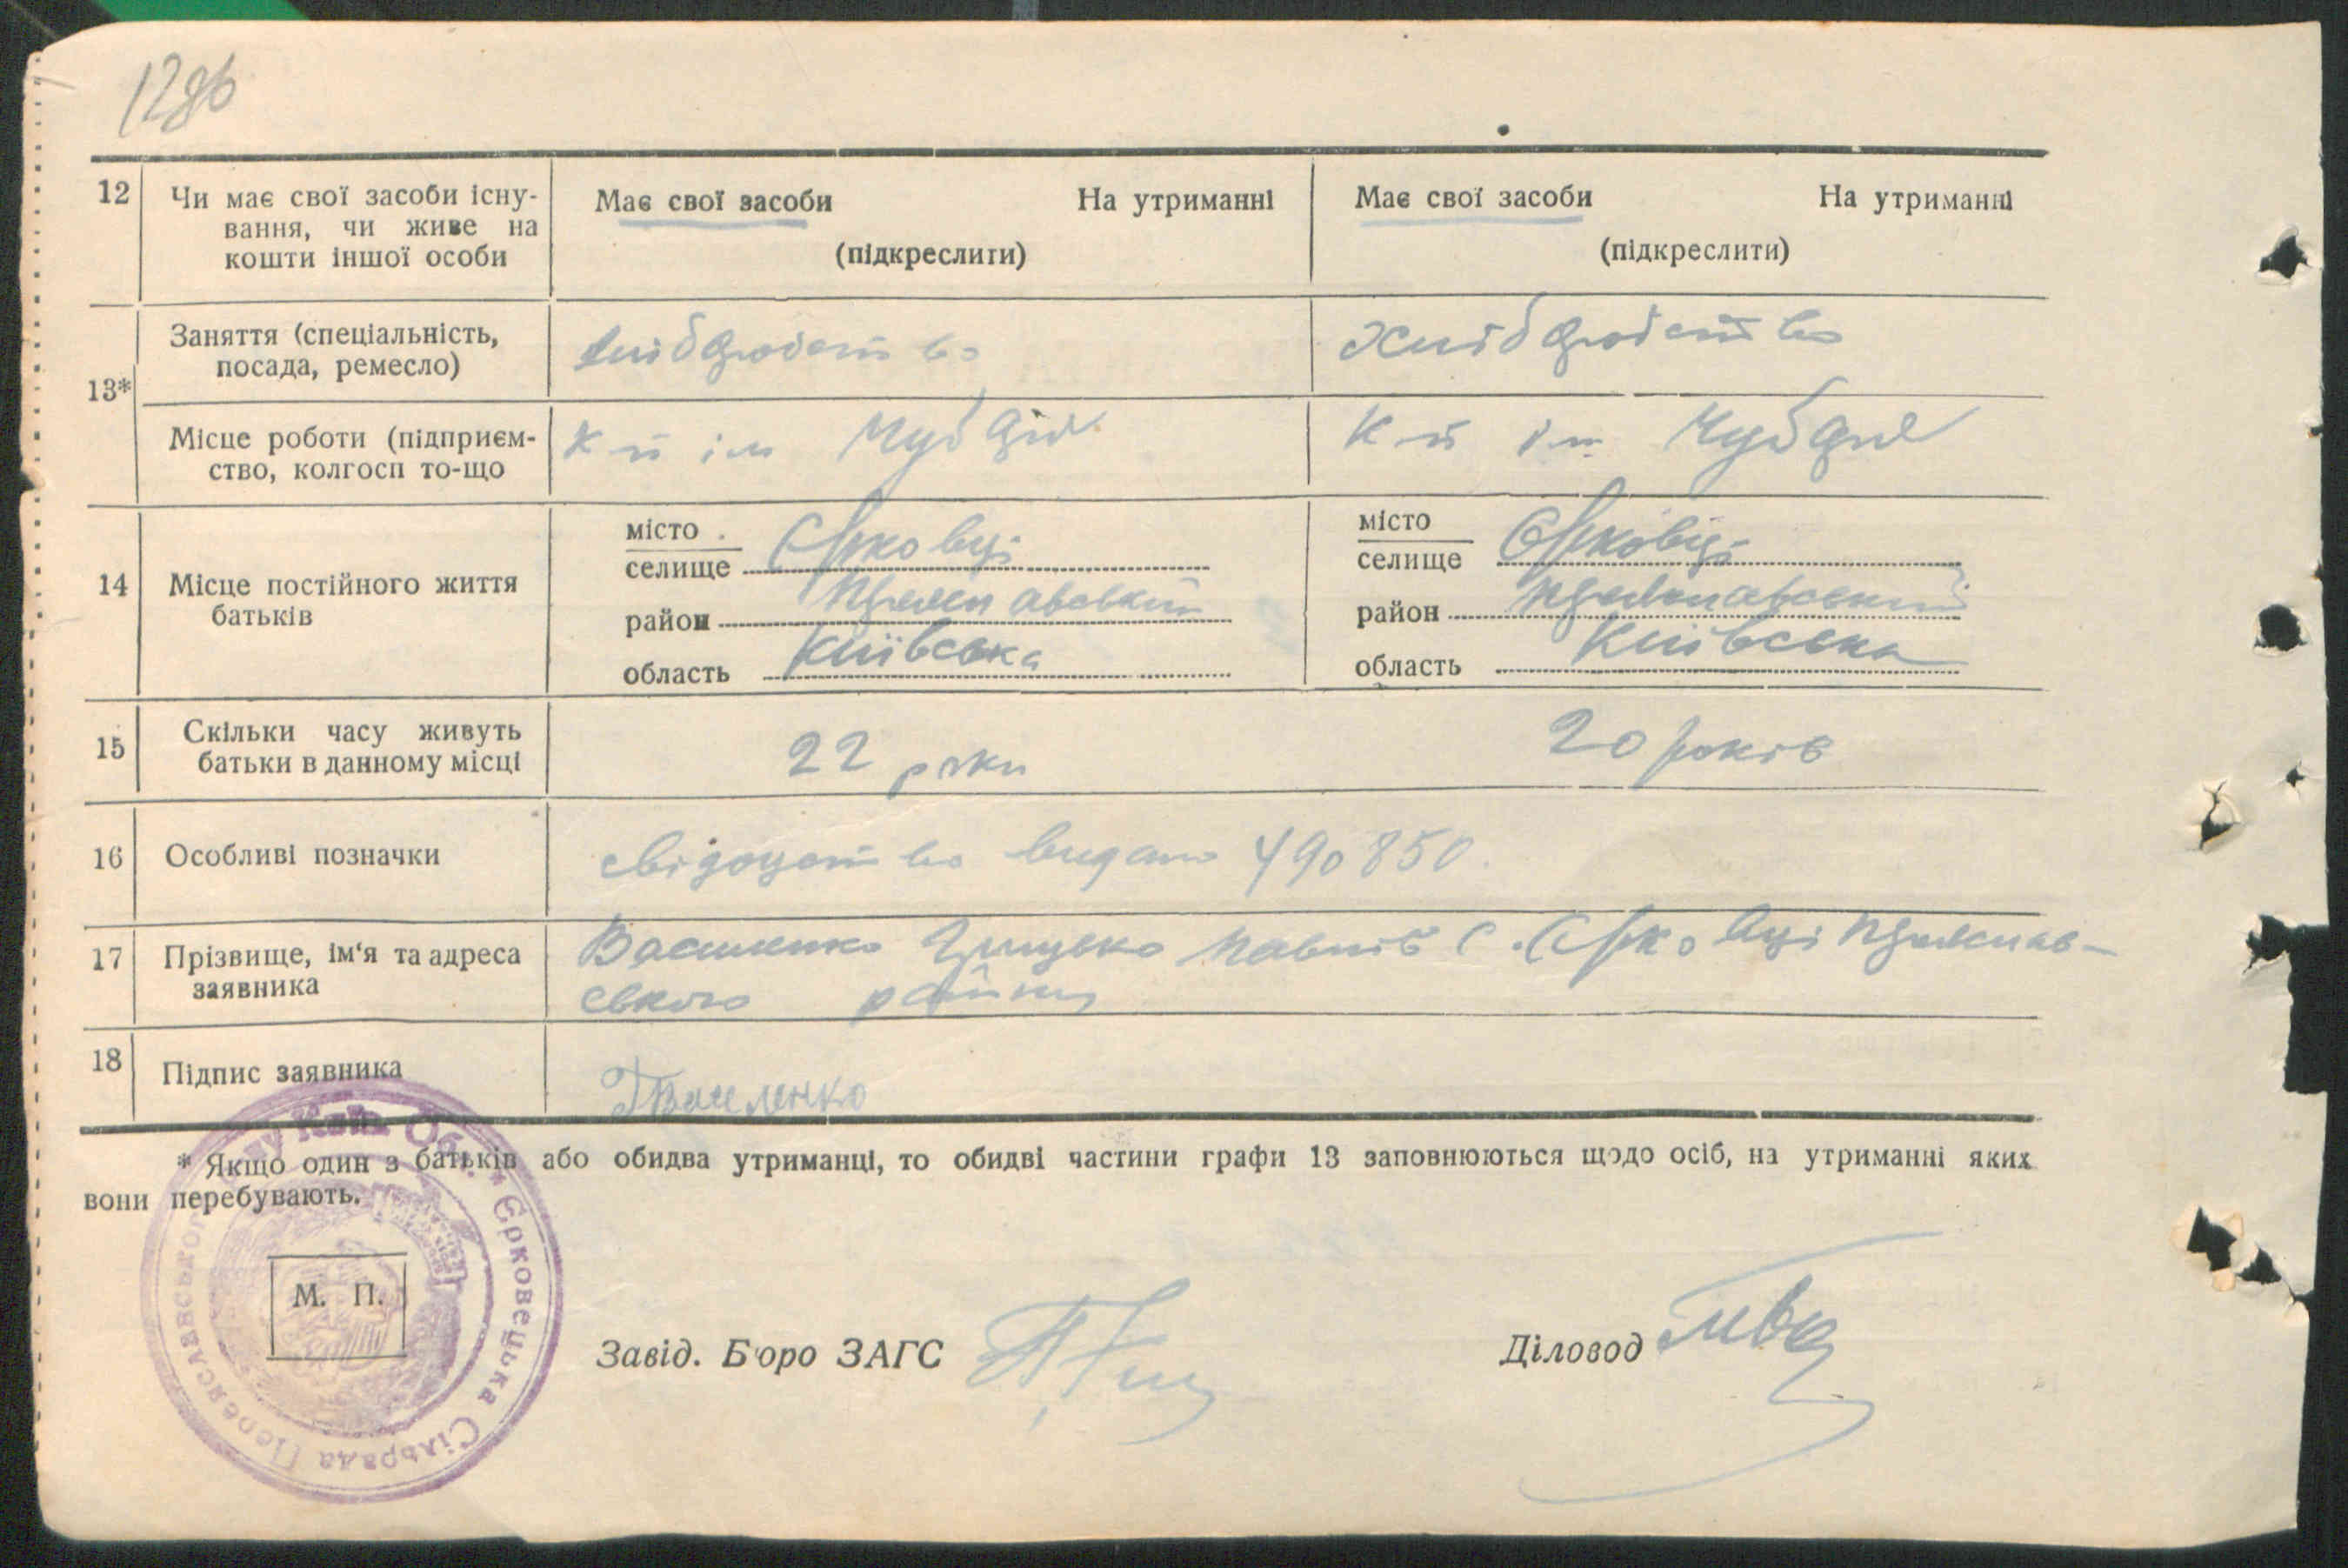 12зв
12 Чи має свої засоби існу-
вання, чи живе на
кошти іншої особи
Має свої засоби На утриманні
(підкреслити)
Має свої засоби На утриманні
(підкреслити)
13*
Заняття (спеціальність,
посада, ремесло)
хлібороб ство
Хлібороб ство
Місце роботи (підприєм-
ство, колгосп то-що
К п ім Чубаря
К п ім Чубаря
14 Місце постійного життя
батьків
місто
селище Єрковці
район Переяславський
область Київська
місто
селище Єрковці
район Переяславський
область Київська
15 Скільки часу живуть
батьки в данному місці
22 роки
20 років
16 Особливі позначки
свідоцтво видано 490850.
17 Прізвище, ім'я та адреса
заявника
Василенко Грицько Павлів с. Єрковці Переяслав-
ського району
18 Підпис заявника
ГВасиленко
* Якщо один з батьків або обидва утриманці, то обидві частини графи 13 заповнюються щодо осіб, на утриманні яких
вони перебувають.
М. П.
Єрковецька Сільрада Переяславського
Завід. Бюро ЗАГС
Діловод